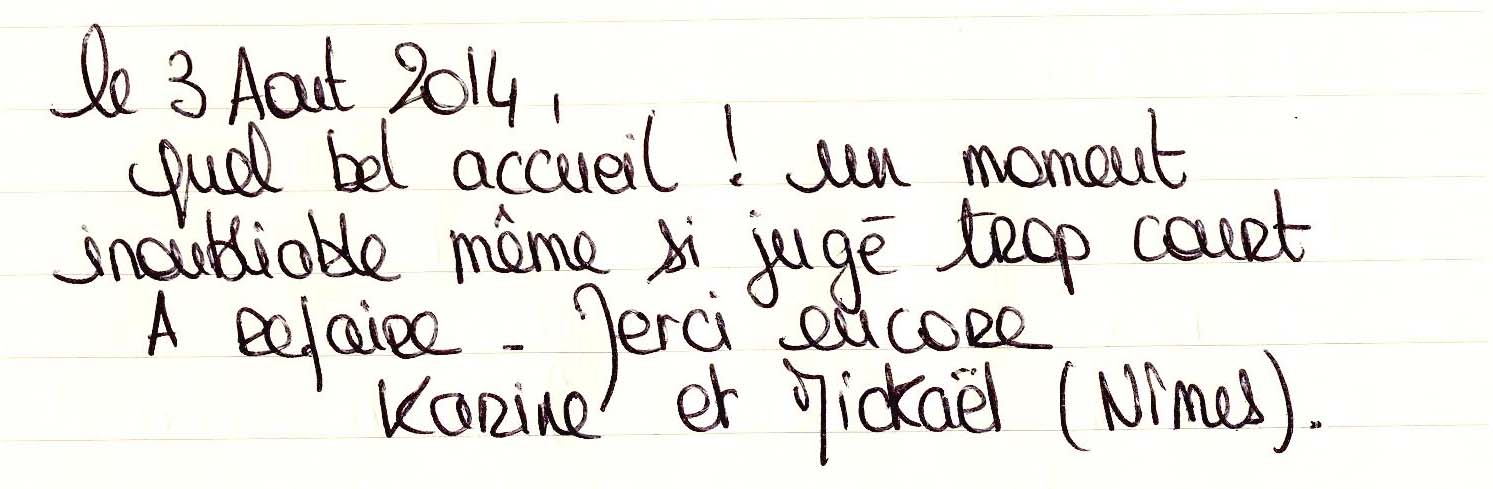 le 3 Aout 2014,
Quel bel accueil ! un moment
inoubliable même si jugé trop court
A refaire - Merci encore
Karine et Mickaël (Nîmes).